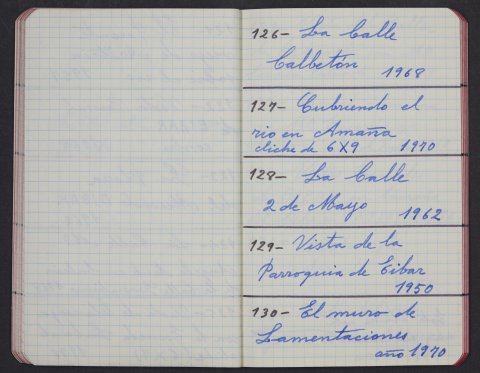 126- La Calle
Calbetón 1968
127- Cubriendo el
rio en Amaña
cliche de 6X9 1970
128- La Calle
2 de Mayo 1962
129- Vista de la
Parroquia de Eibar
1950
130- El muro de
Lamentaciones
año 1970